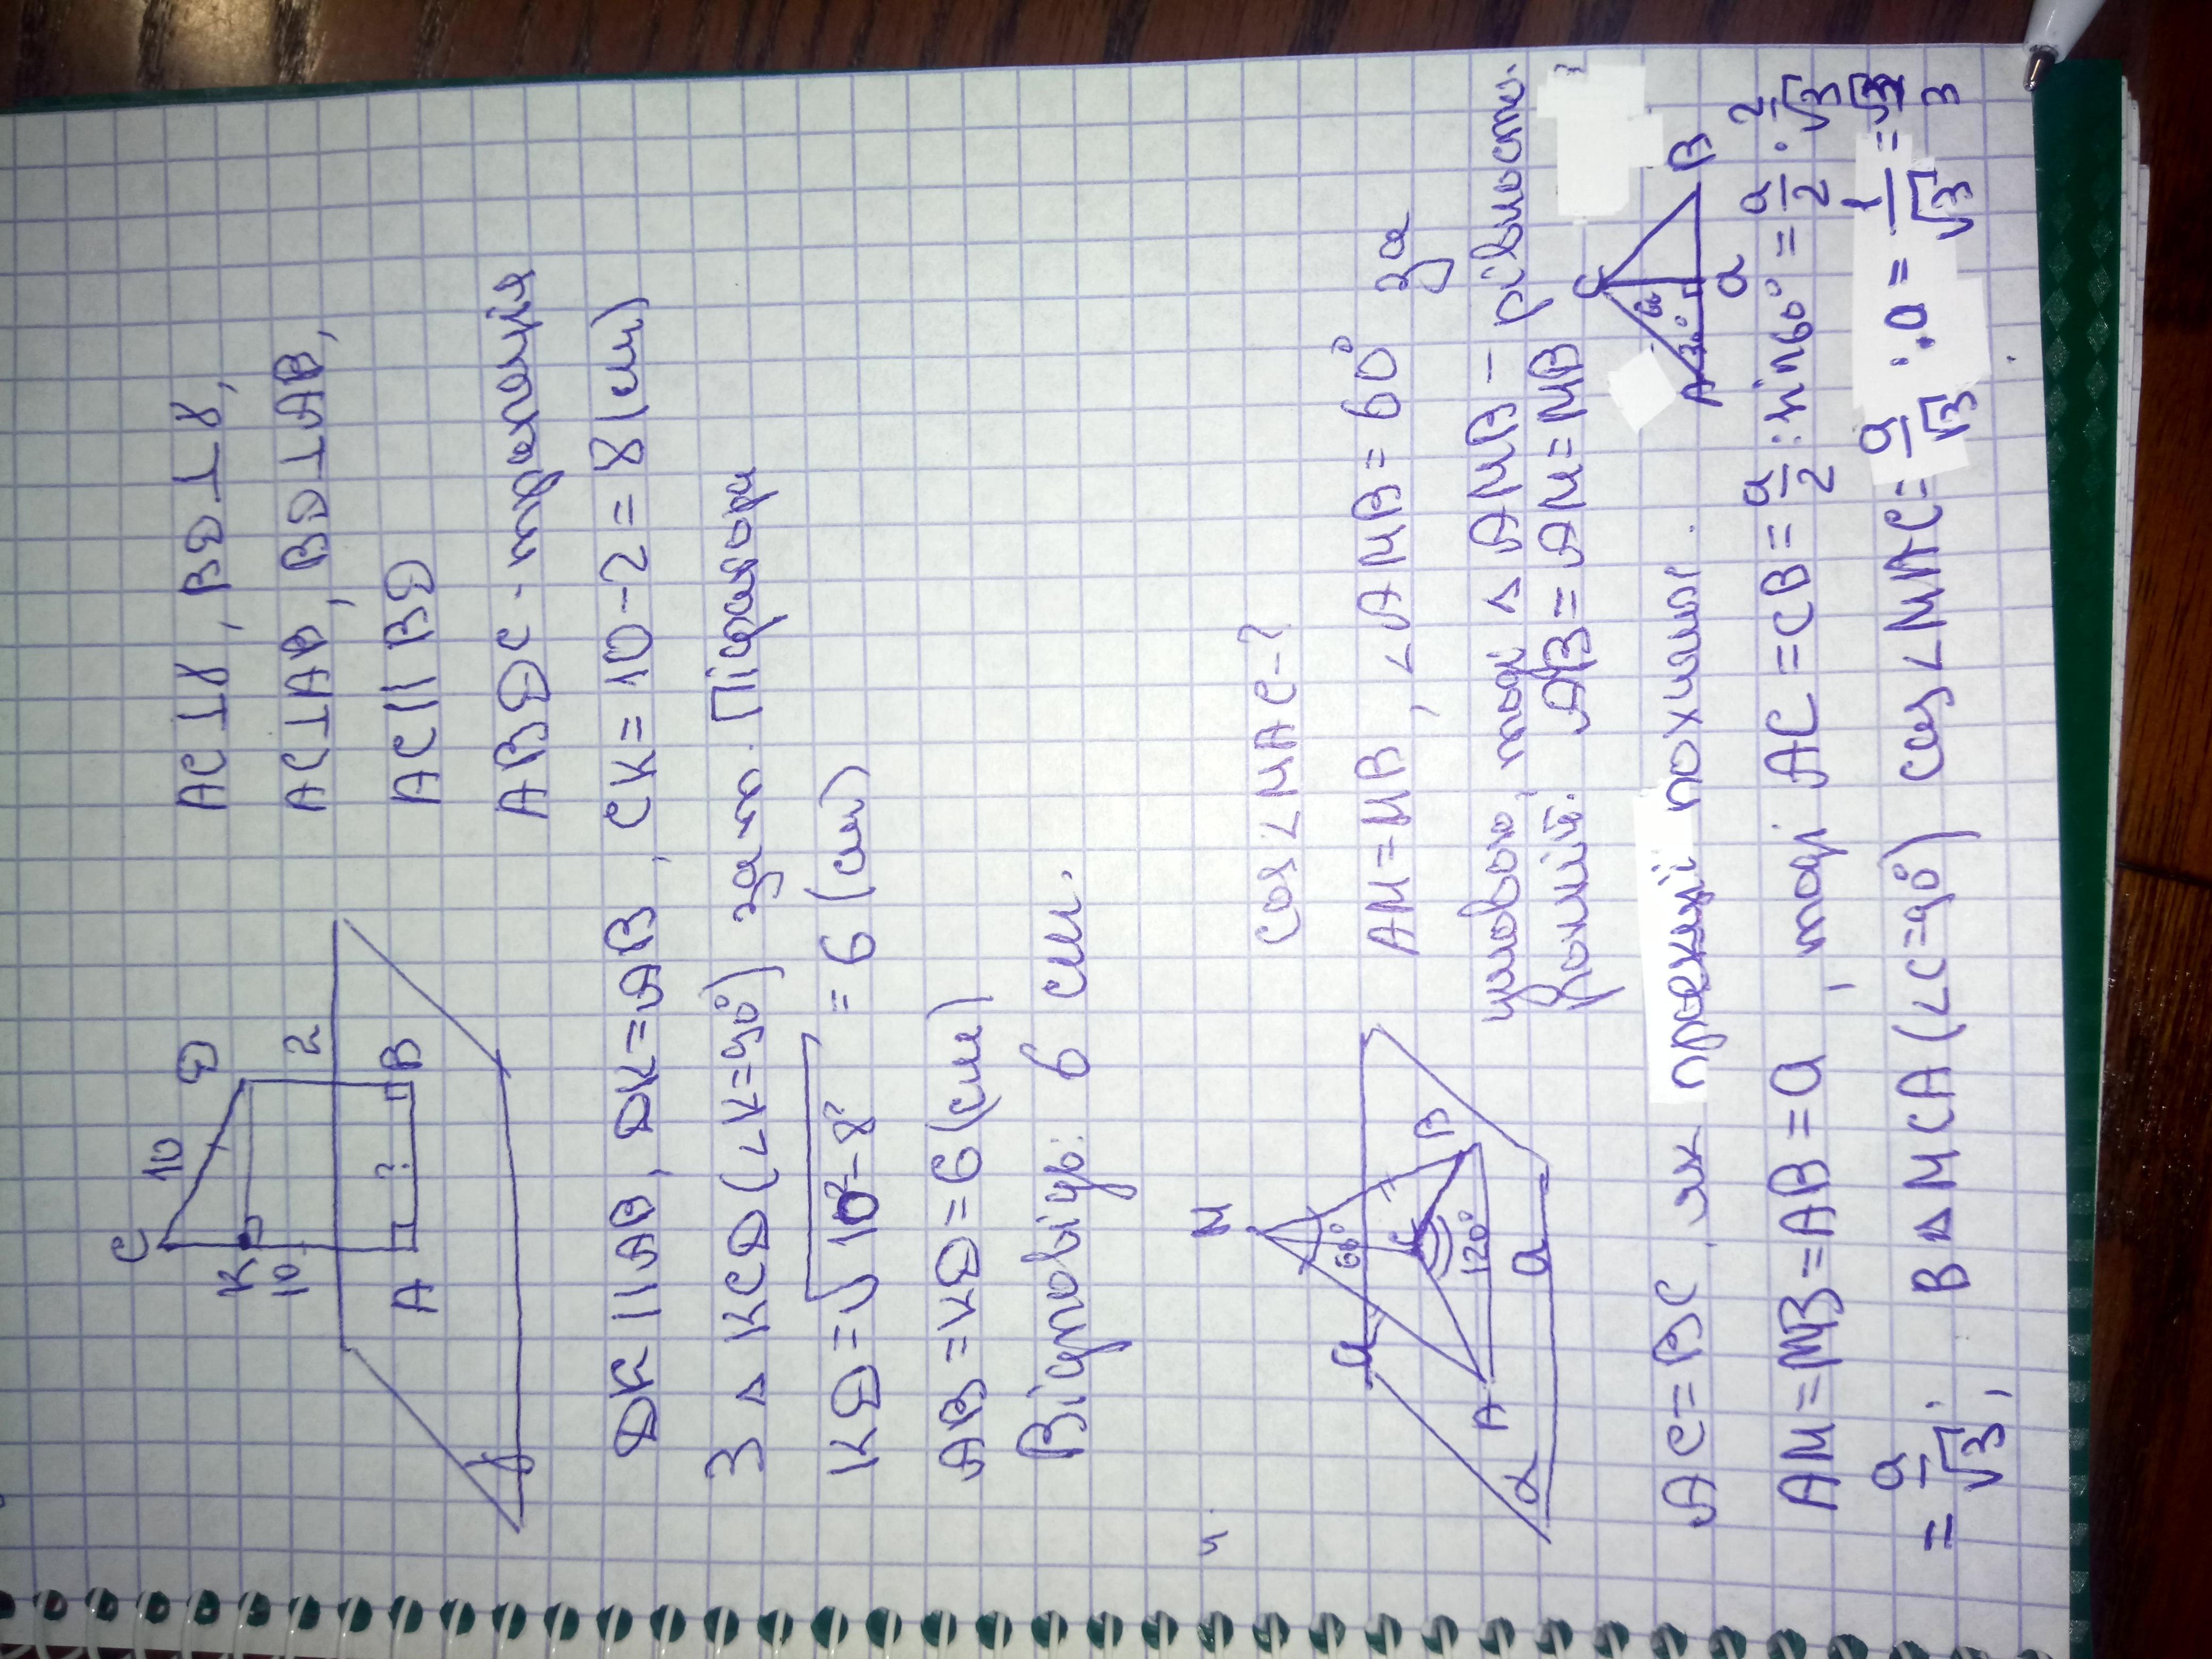 C
10
D
K
10
2
A
?
B
γ
AC⊥γ, BD⊥γ,
AC⊥AB, BD⊥AB,
AC∥BD
ABDC - трапеція
DK∥AB, DK=AB, CK=10-2=8(см)
З △KCD (∠K=90°) за т. Піфагора
KD=√10²-8² = 6(см)
AB=KD=6(см)
Відповідь: 6 см.
4.
M
60°
a
C
B
120°
A
a
α
cos∠MAC-?
AM=MB, ∠AMB=60° за
умовою, тоді △AMB - рівносто-
ронній. AB=AM=MB
AC=BC, як проекції похилої.
C
60°
A
30°
B
a
AM=MB=AB=a, тоді AC=CB=a/2 : sin60°= a/2 · 2/√3
= a/√3; В △MCA (∠C=90°) cos∠MAC= a/√3 : a = 1/√3 = √3/3